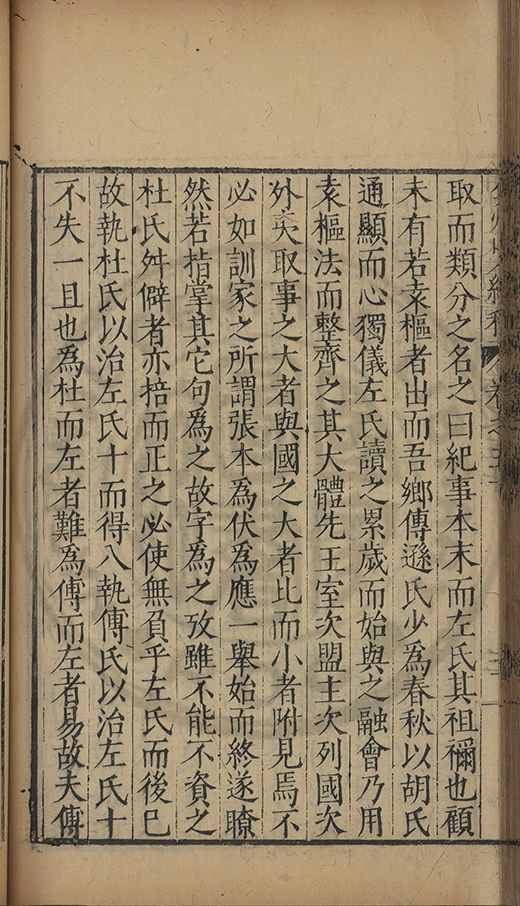 取而類分之名之曰紀事本末而左氏其祖禰也顧
未有若袁樞者出而吾鄉傳遜氏少為春秋以胡氏
通顯而心獨儀左氏讀之累歲而始與之融會乃用
袁樞法而整齊之其大體先王室次盟主次列國次
外夷取事之大者與國之大者比而小者附見焉不
必如訓家之所謂張本為伏為應一舉始而終遂瞭
然若指掌其它句為之故字為之攷雖不能不資之
杜氏舛僻者亦棓而正之必使無負乎左氏而後已
故執杜氏以治左氏十而得八執傳氏以治左氏十
不失一且也為杜而左者難為傳而左者易故夫傳